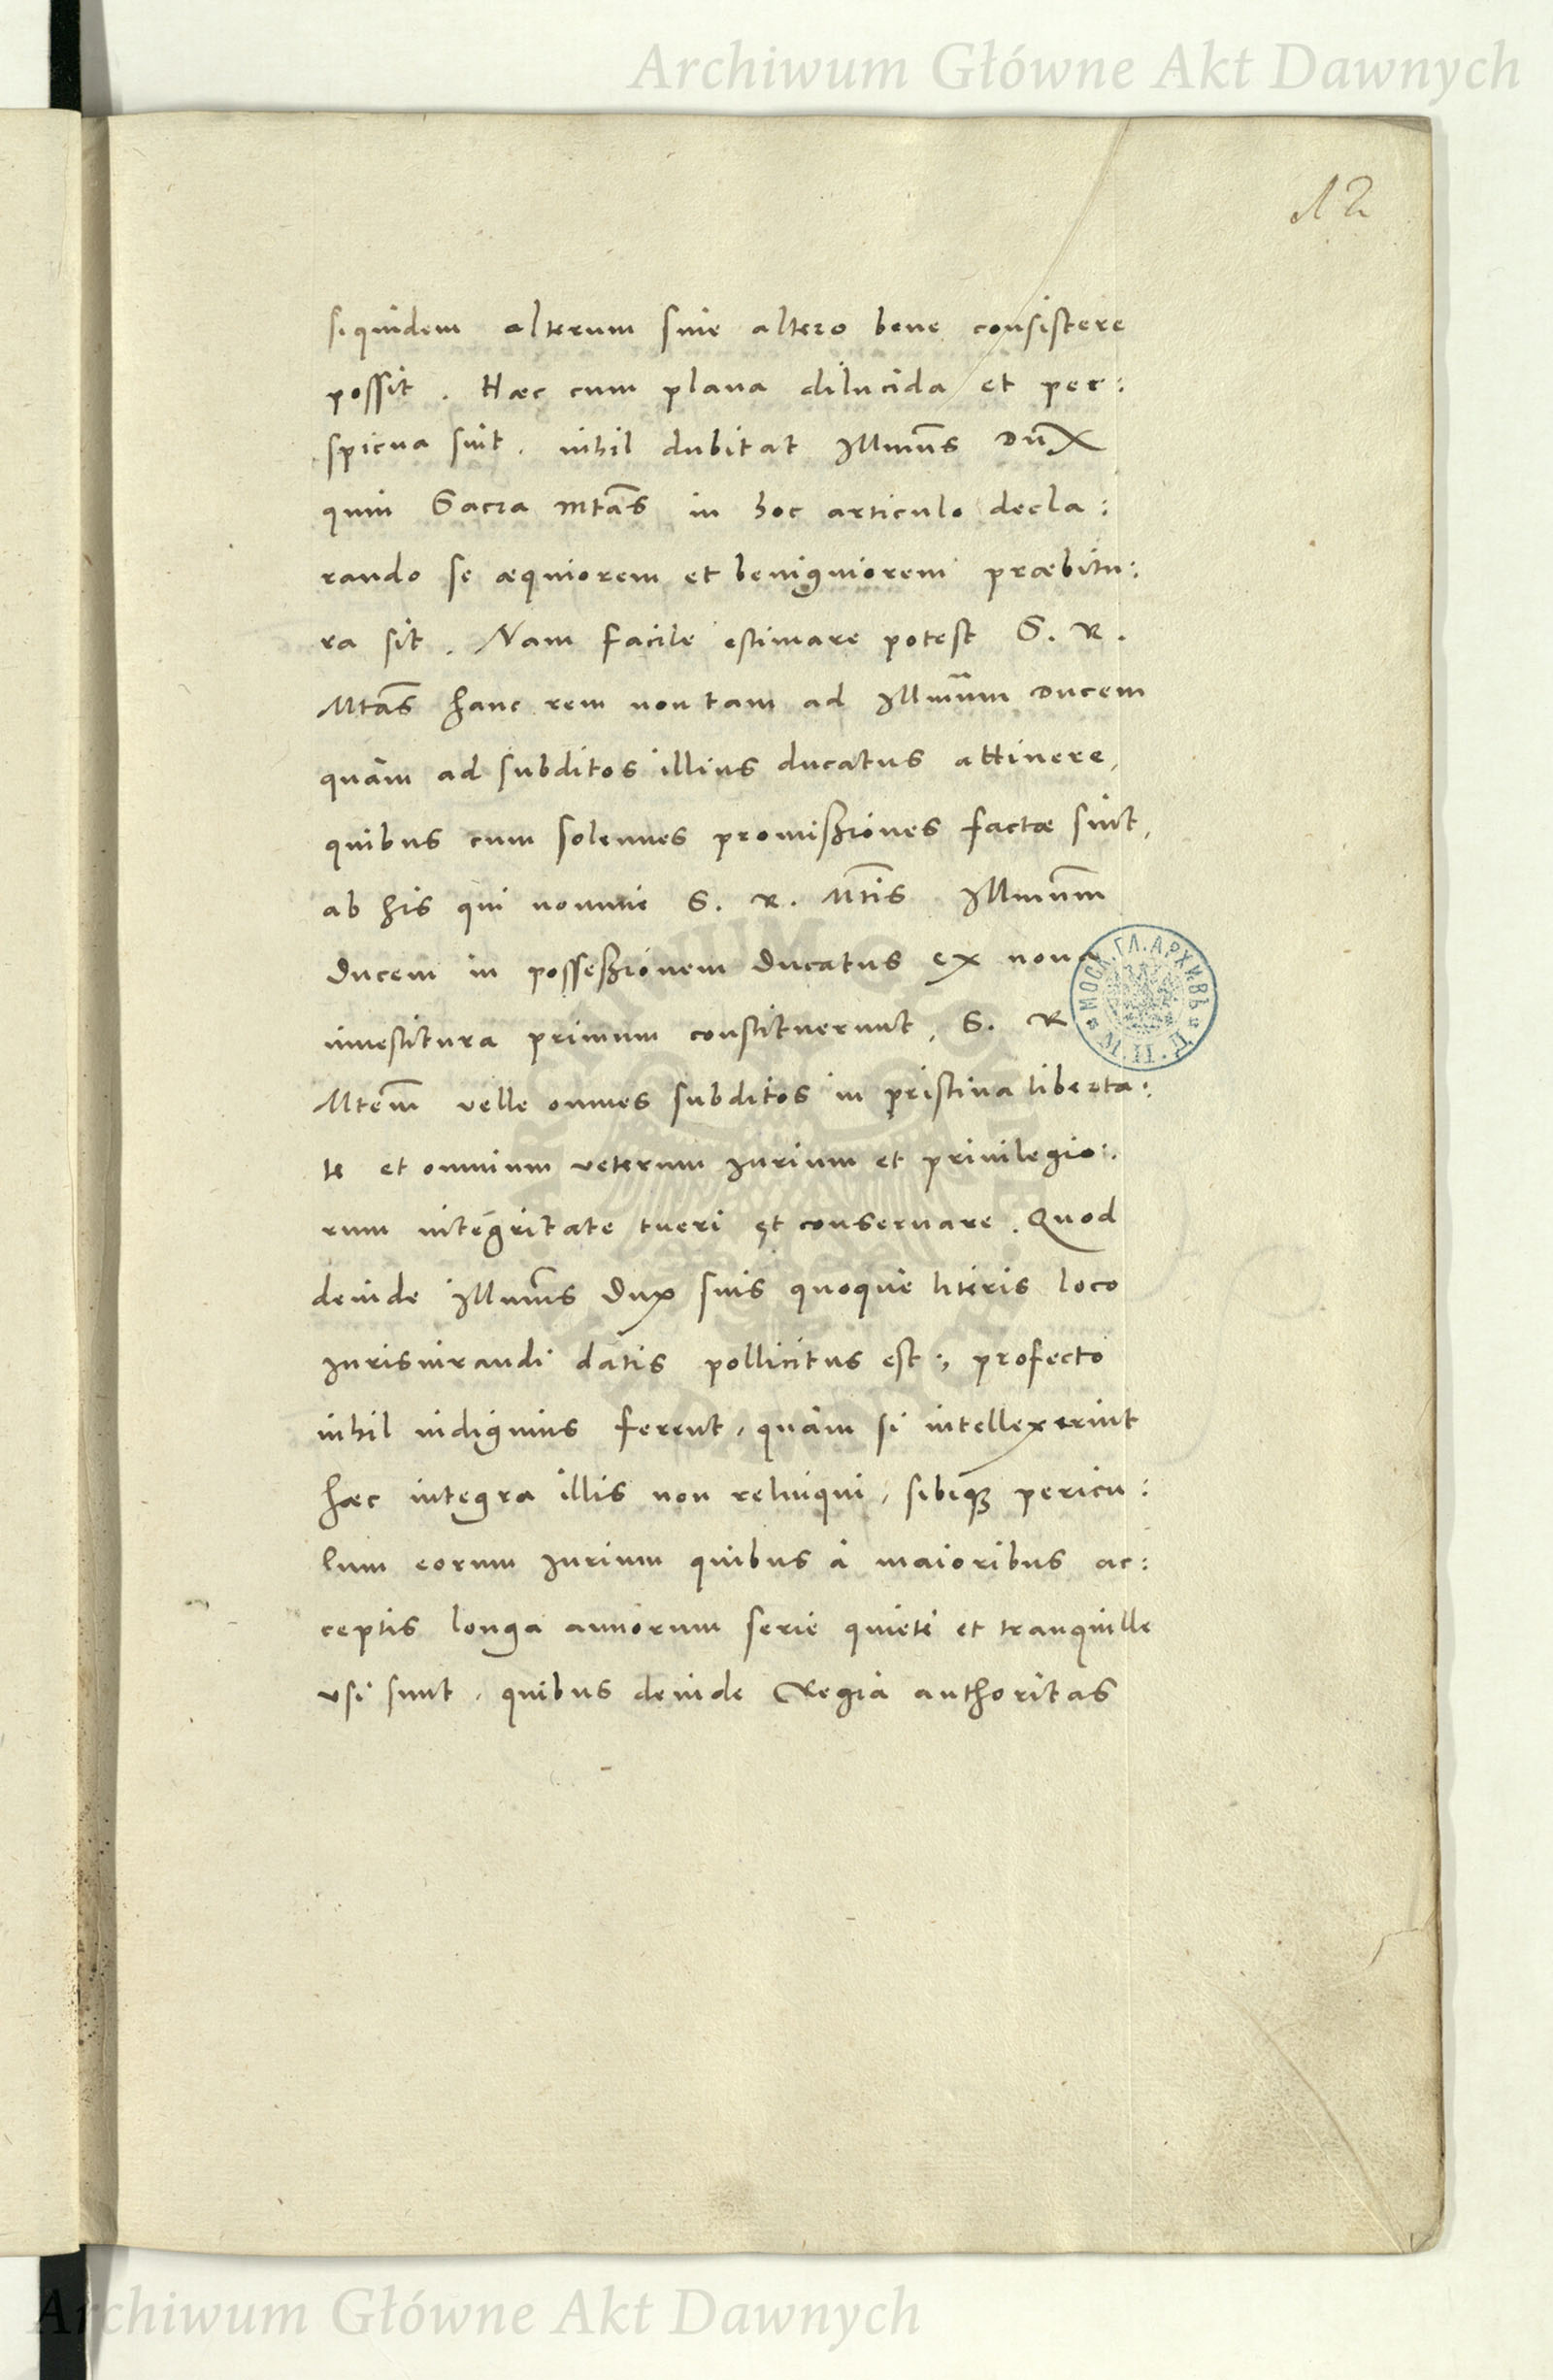 Archiwum Główne Akt Dawnych
12
siquidem alterum sine altero bene consistere
possit. Hæc cum plana dilucida et per:
spicua sint, nihil dubitat Illmũs Dux
quin Sacra Mtãs in hoc articulo decla:
rando se æquiorem et benigniorem præbitu:
ra sit. Nam facile estimare potest S. R.
Mtãs hanc rem non tam ad Illmũm Ducem
quàm ad subditos illius ducatus attinere,
quibus cum solennes promißiones factæ sint,
ab his qui nomine S. R. Mtĩs Illmũm
Ducem in posseßionem Ducatus ex noua
inuestitura primum constituerunt, S. R.
Mtẽm velle omnes subditos in pristina liberta:
te et omnium veterum Iurium et priuilegio:
rum integritate tueri et conseruare. Quod
deinde Illmũs Dux suis quoque literis loco
Iurisiurandi datis pollicitus est:, profecto
nihil indignius ferent, quàm si intellexerint
hæc integra illis non relinqui, sibiqꝫ pericu:
lum eorum Iurium quibus à maioribus ac:
ceptis longa annorum serie quietè et tranquille
vsi sunt, quibus deinde Regia authoritas
МОСК. ГЛ. АРХИВЪ
ARCHIWUM GŁÓWNE AKT DAWNYCH
Archiwum Główne Akt Dawnych